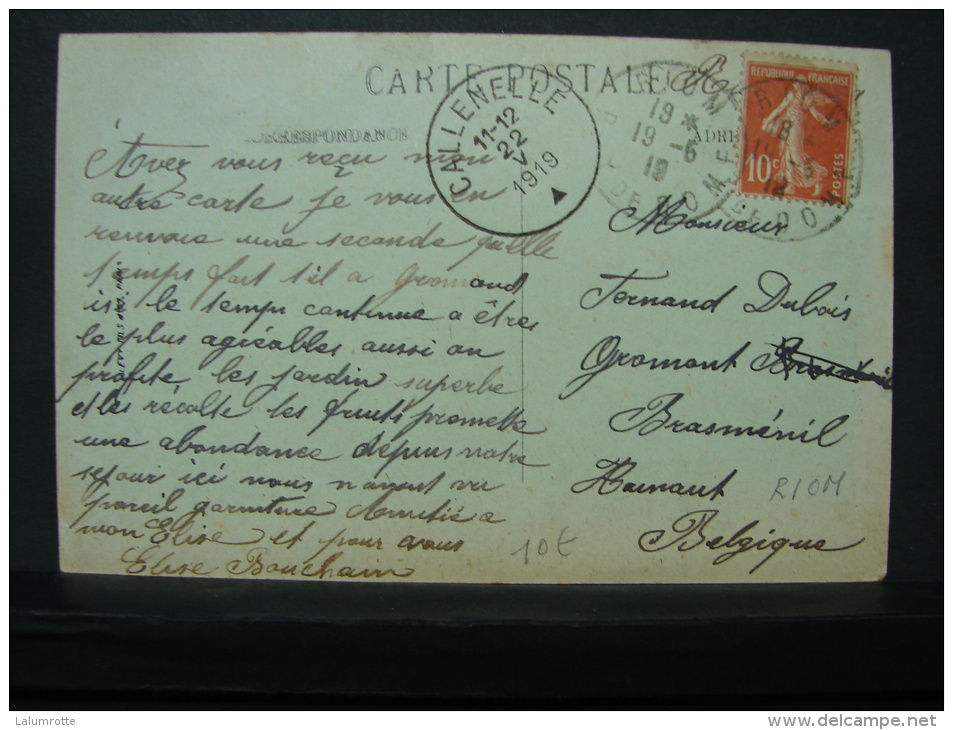 CARTE POSTALE
CORRESPONDANCE
ADRE
CALLENELLE
11-12
22
V
1919
RIOM
19 *
19 -5
19
DE DOM
RIOM
18
DE DOME
REPUBLIQUE FRANÇAISE
10c
POSTES
Avez vous reçu mon
autre carte je vous en
renvoie une seconde quelle
temps fait t'il a Gromond
ici le temps continue a êtres
le plus agréables aussi on
profite les jardin superbe
et les récolte les fruits promette
une abondance depuis notre
sejour ici nous n'avont vu
pareil garniture Amitiés a
mon Elise et pour vous
Elise Bouchain
Monsieur
Fernand Dubois
Gromont
Brasménil
Hainaut
Belgique
RIOM
10€
Lalumrotte
www.delcampe.net